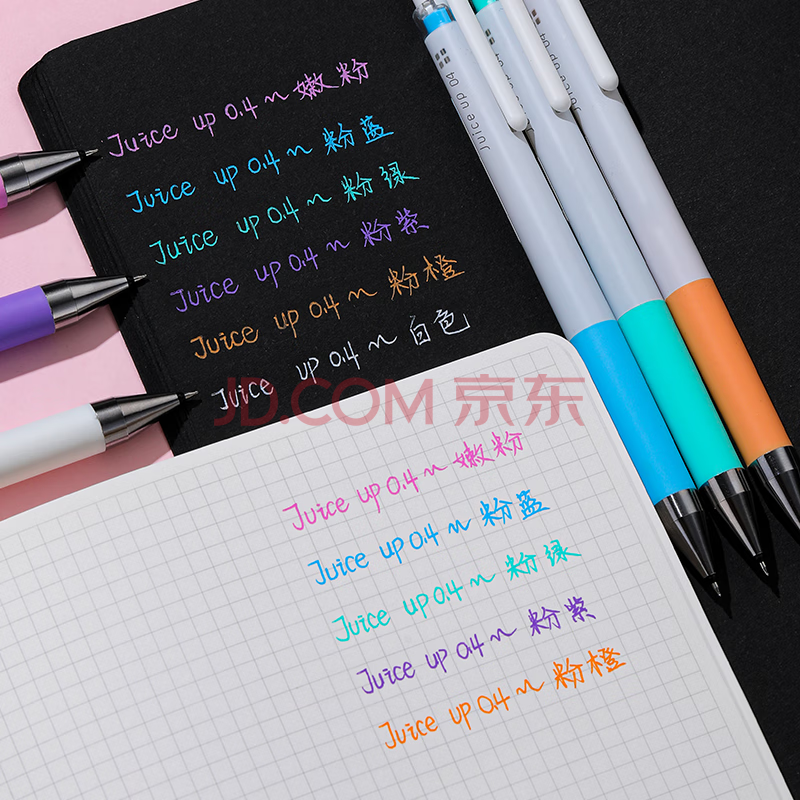 Juice up 0.4~嫩粉
Juice up 0.4~粉蓝
Juice up 0.4~粉绿
Juice up 0.4~粉紫
Juice up 0.4~粉橙
Juice up 0.4~白色
JD.COM 京东
Juice up 0.4~嫩粉
Juice up 0.4~粉蓝
Juice up 0.4~粉绿
Juice up 0.4~粉紫
Juice up 0.4~粉橙
Juice up 04
Juice up 04
Juice up 04